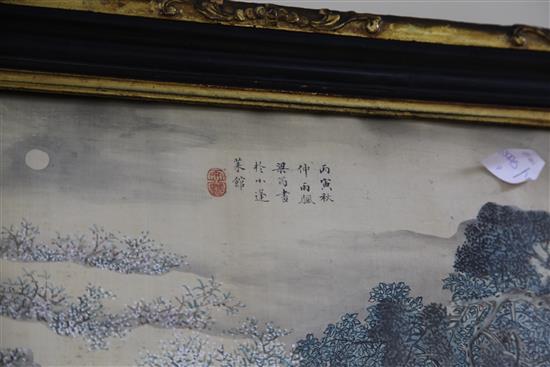 丙寅秋
仲雨颿
梁筠書
於小蓬
萊館